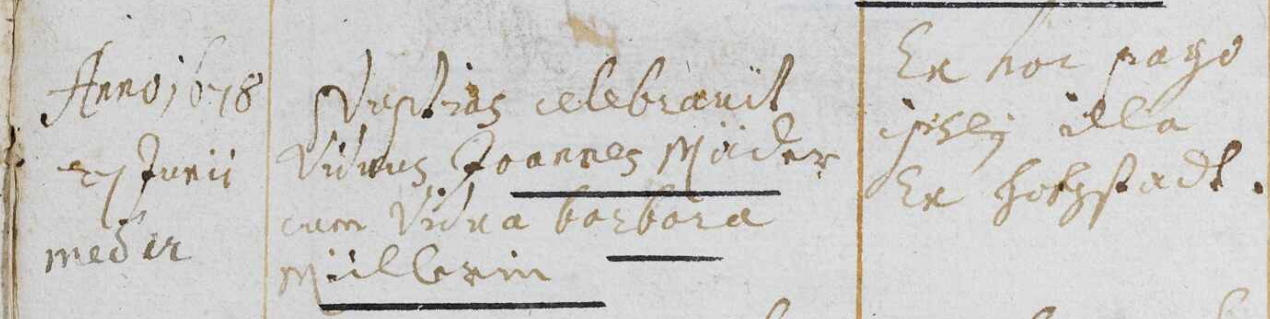 Anno 1678
27 Junii
meder
Nuptias celebravit
Viduus Joannes Mäder
cum Vidua barbara
Müllerin
Ex hoc pago
illa
Ex hochstadt.